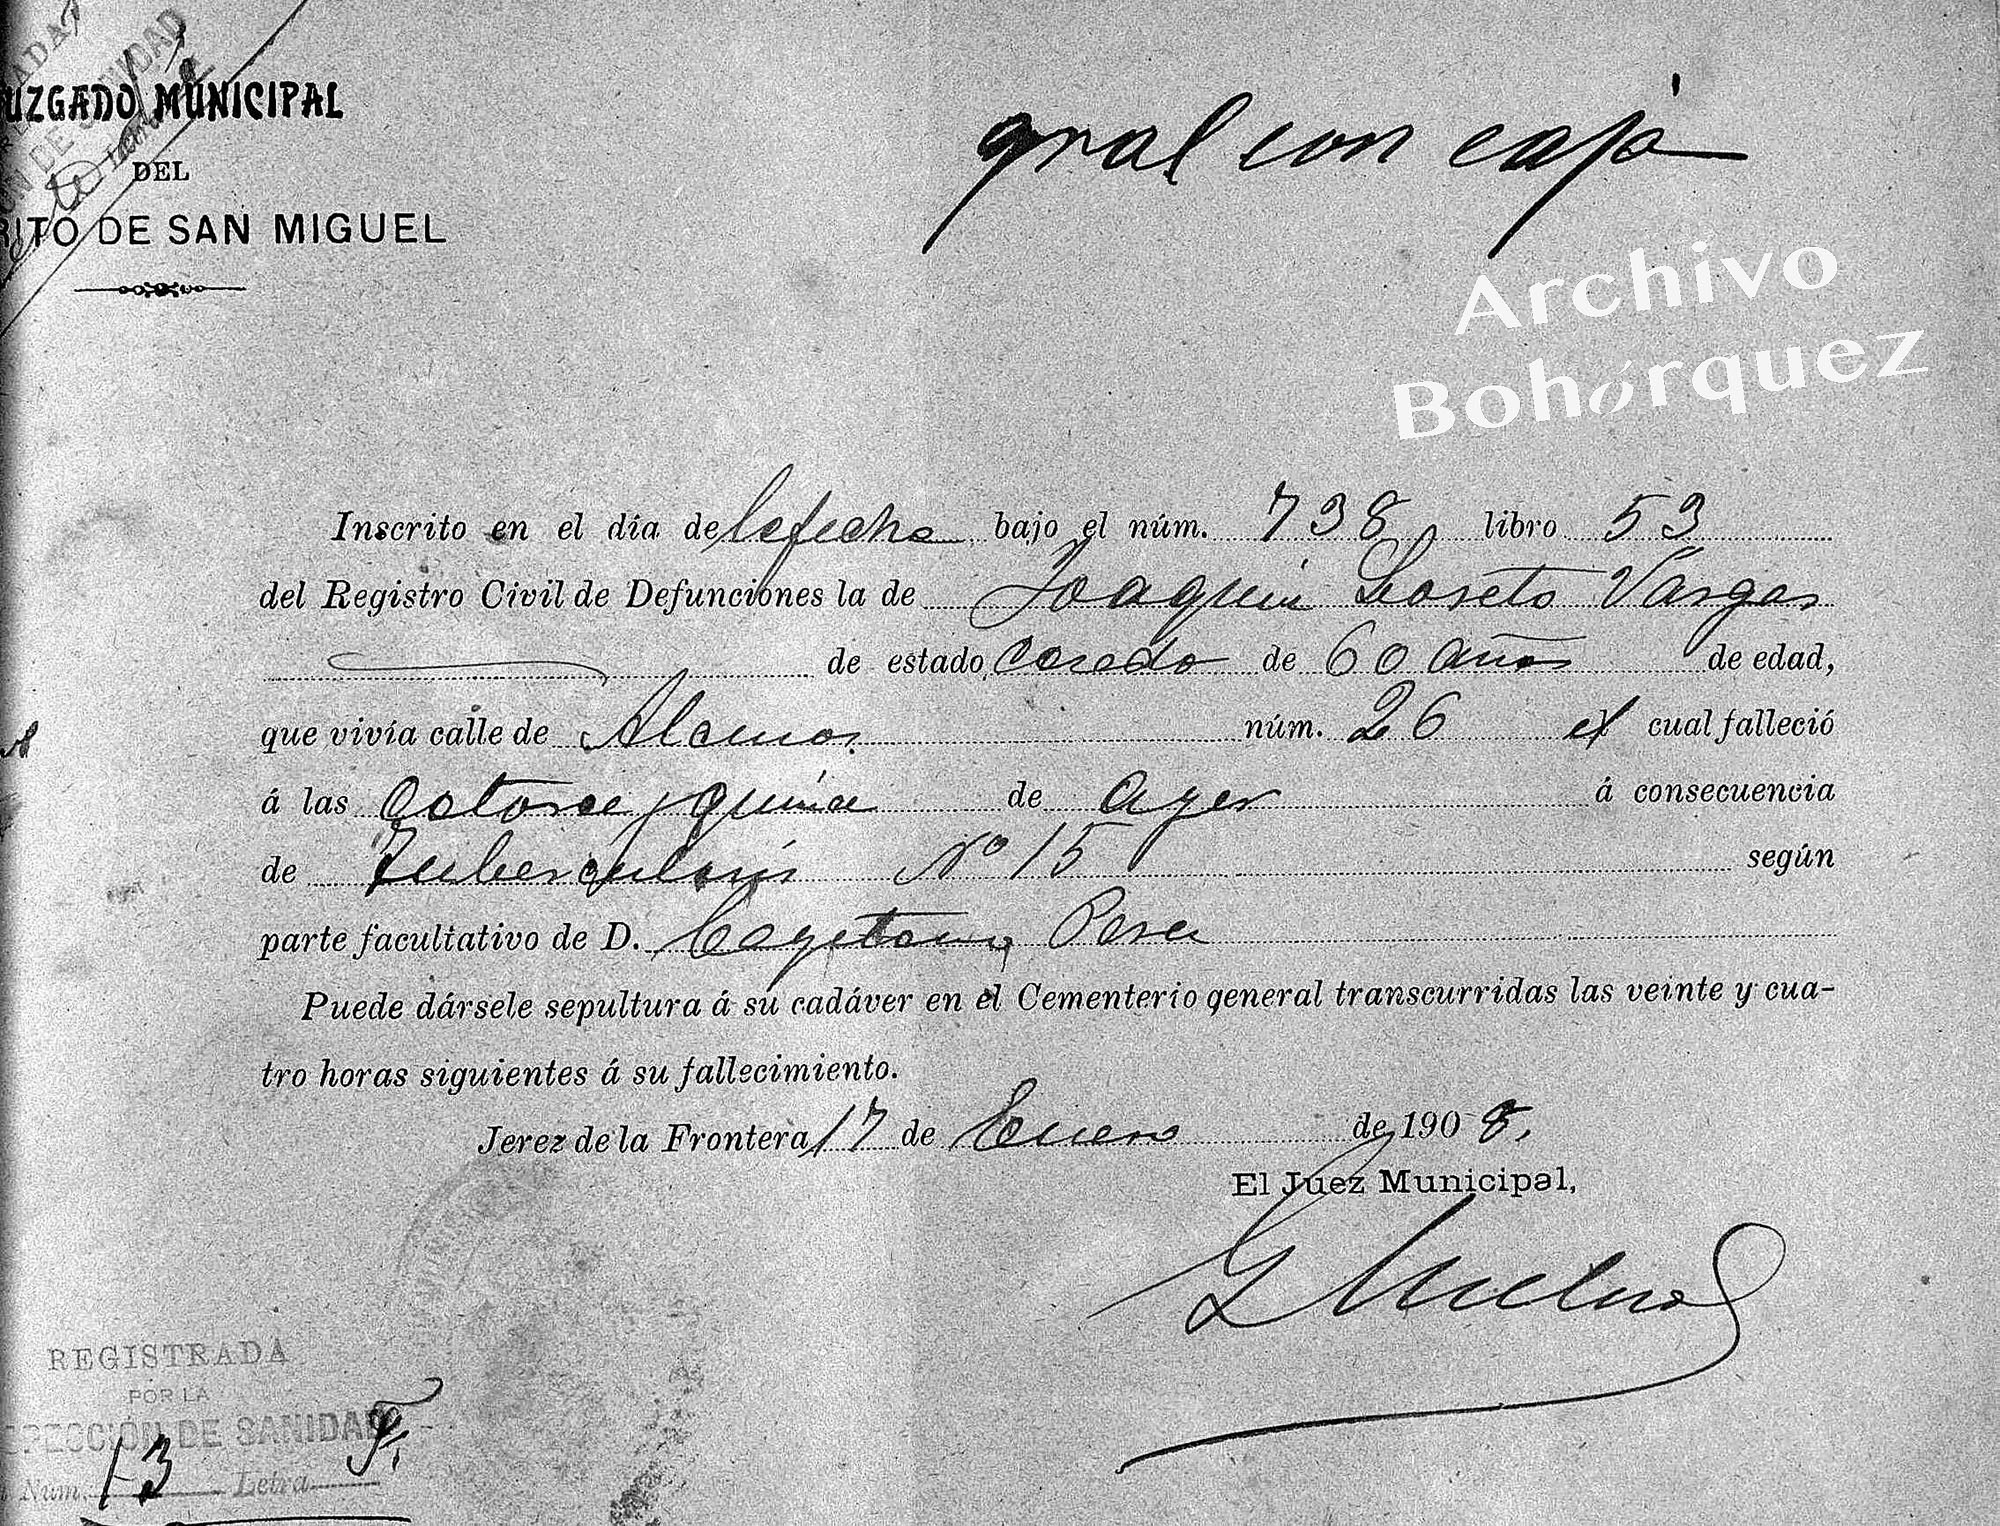 UZGADO MUNICIPAL
DEL
RITO DE SAN MIGUEL
gral con caja
Archivo
Bohórquez
Inscrito en el día de la fecha bajo el núm. 738 libro 53
del Registro Civil de Defunciones la de Joaquin Loreto Vargas
de estado, casado de 60 años de edad,
que vivía calle de Alamos núm. 26 el cual falleció
á las catorce y quince de ayer á consecuencia
de Tuberculosis Nº 15 según
parte facultativo de D. Cayetano
Puede dársele sepultura á su cadáver en el Cementerio general transcurridas las veinte y cua-
tro horas siguientes á su fallecimiento.
Jerez de la Frontera 17 de Enero de 1908.
El Juez Municipal,
REGISTRADA
POR LA
PECCIÓN DE SANIDAD
Num. 13 Letra F.